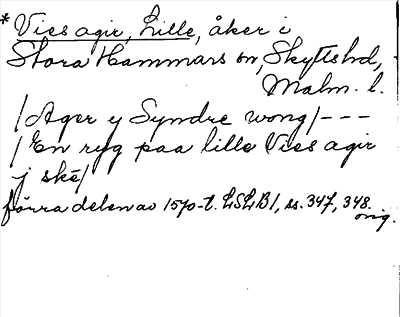 * Vies agir, Lille, åker i
Stora Hammars sn, Skytts hd,
Malm. l.
/Ager y Syndre wong/ - - -
/En ryg paa lille Vies agir
j ske/
förra delen av 1570-t. LSLB1, ss. 347, 348.
orig.